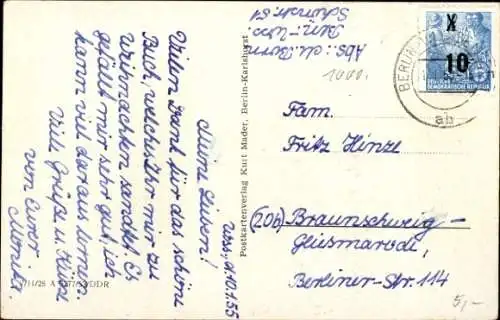 Uess., d. 10.1.55
Meine Lieben!
Vielen Dank für das schöne
Buch, welches Ihr mir zu
Weihnachten sandtet. Es
gefällt mir sehr gut, ich
kann viel daraus lernen.
Viele Grüße u. Küsse
von Eurer
Monika
DDR
Postkartenverlag Kurt Mader, Berlin-Karlshorst
Abs.: M. Born
1000.
X
10
DEMOKRATISCHE REPUBLIK
BERLIN
ab
Fam.
Fritz Hinze
(20b) Braunschweig-
Gliesmarode,
Berliner-Str. 114
5,-